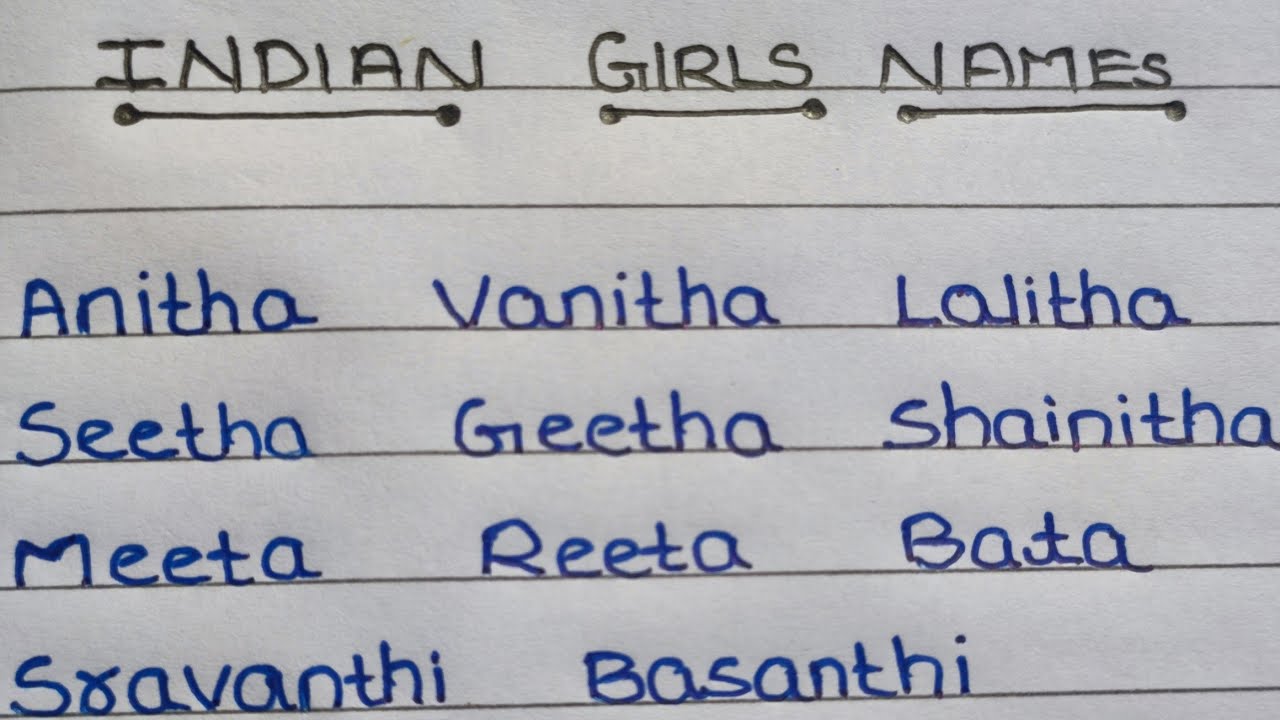 INDIAN GIRLS NAMES
Anitha Vanitha Lalitha
Seetha Geetha Shainitha
Meeta Reeta Bata
Sravanthi Basanthi